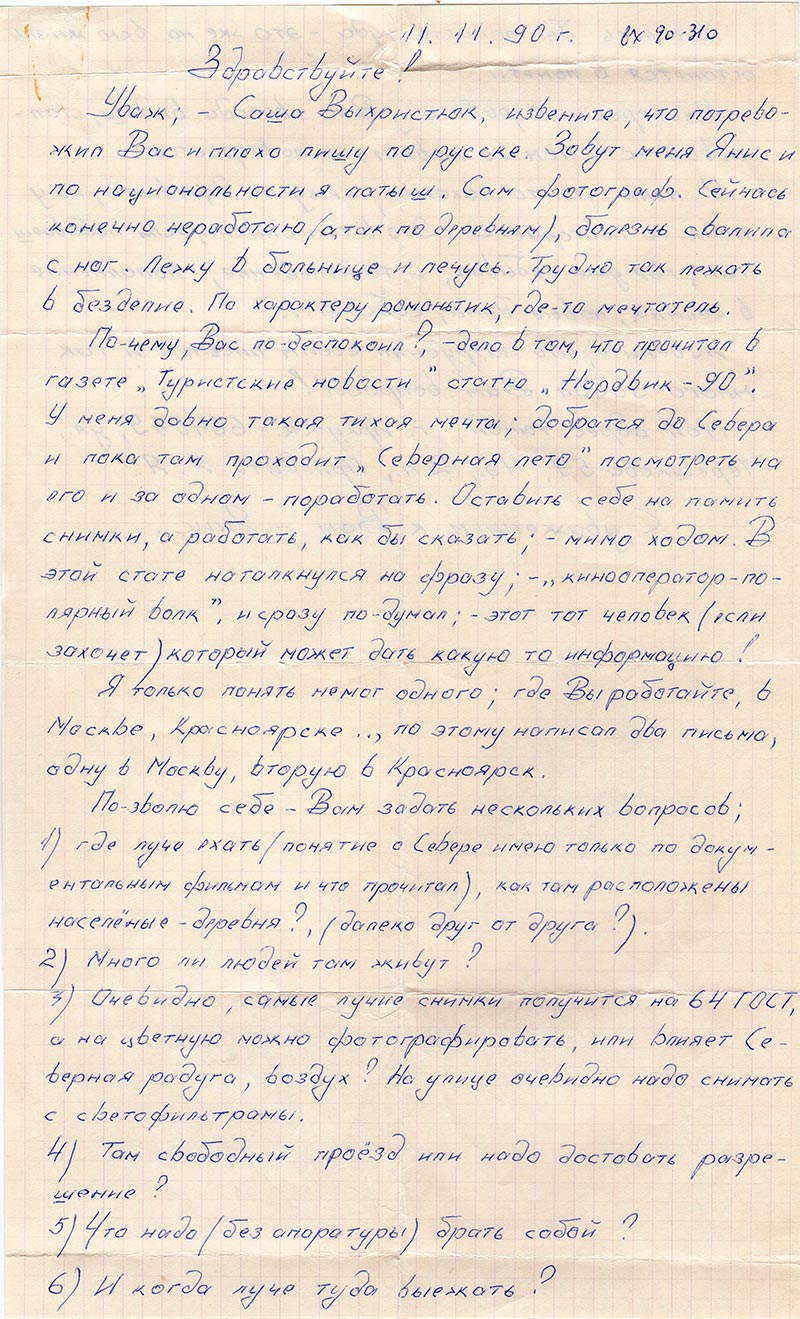 11. 11. 90 г. вх 90-310
Здравствуйте!
Уваж; - Саша Выхристюк, извените, что потрево-
жил Вас и плохо пишу по русске. Зовут меня Янис и
по национальности я латыш. Сам фотограф. Сейчась
конечно неработаю (а, так по деревням), болезнь свалила
с ног. Лежу в больнице и лечусь. Трудно так лежать
в безделие. По характеру романьтик, где-то мечтатель.
По-чему, Вас по-беспокоил?, - дело в том, что прочитал в
газете „Туристские новости” статю „Нордвик - 90”.
У меня давно такая тихая мечта; добратся до Севера
и пока там проходит „Северная лето” посмотреть на
его и за одном - поработать. Оставить себе на память
снимки, а работать, как бы сказать; - мимо ходом. В
этой стате наталкнулся на фразу; - „кинооператор-по-
лярный волк”, и сразу по-думал; - этот тот человек (если
захочет) который может дать какую то информацию!
Я только понять немог одного; где Вы работайте, в
Москве, Красноярске .., по этому написал два письма,
одну в Москву, вторую в Красноярск.
По-зволю себе - Вам задать нескольких вопросов;
1) где луче ехать (понятие о Севере имею только по докум-
ентальным фильмам и что прочитал), как там расположены
населёные - деревня?, (далеко друг от друга?).
2) Много ли людей там живут?
3) Очевидно, самые лучие снимки получится на 64 ГОСТ,
а на цветную можно фотографировать, или влияет Се-
верная радуга, воздух? На улице очевидно надо снимать
с светофильтрамы.
4) Там свободный проёзд или надо достовать разре-
шение?
5) Что надо (без апоратуры) брать собой?
6) И когда луче туда выежать?